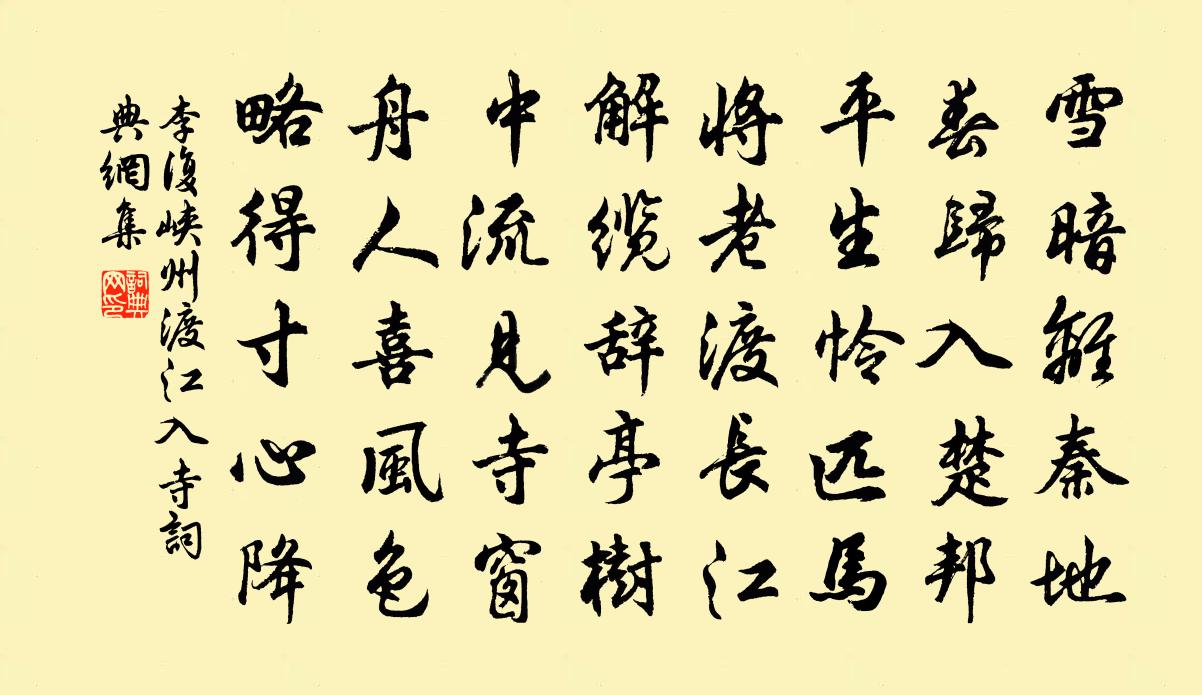 雪暗離秦地
春歸入楚邦
平生怜匹馬
將老渡長江
解缆辞亭樹
中流見寺窗
舟人喜風色
略得寸心降
李復峽州渡江入寺詞
典網集
詞典
网印